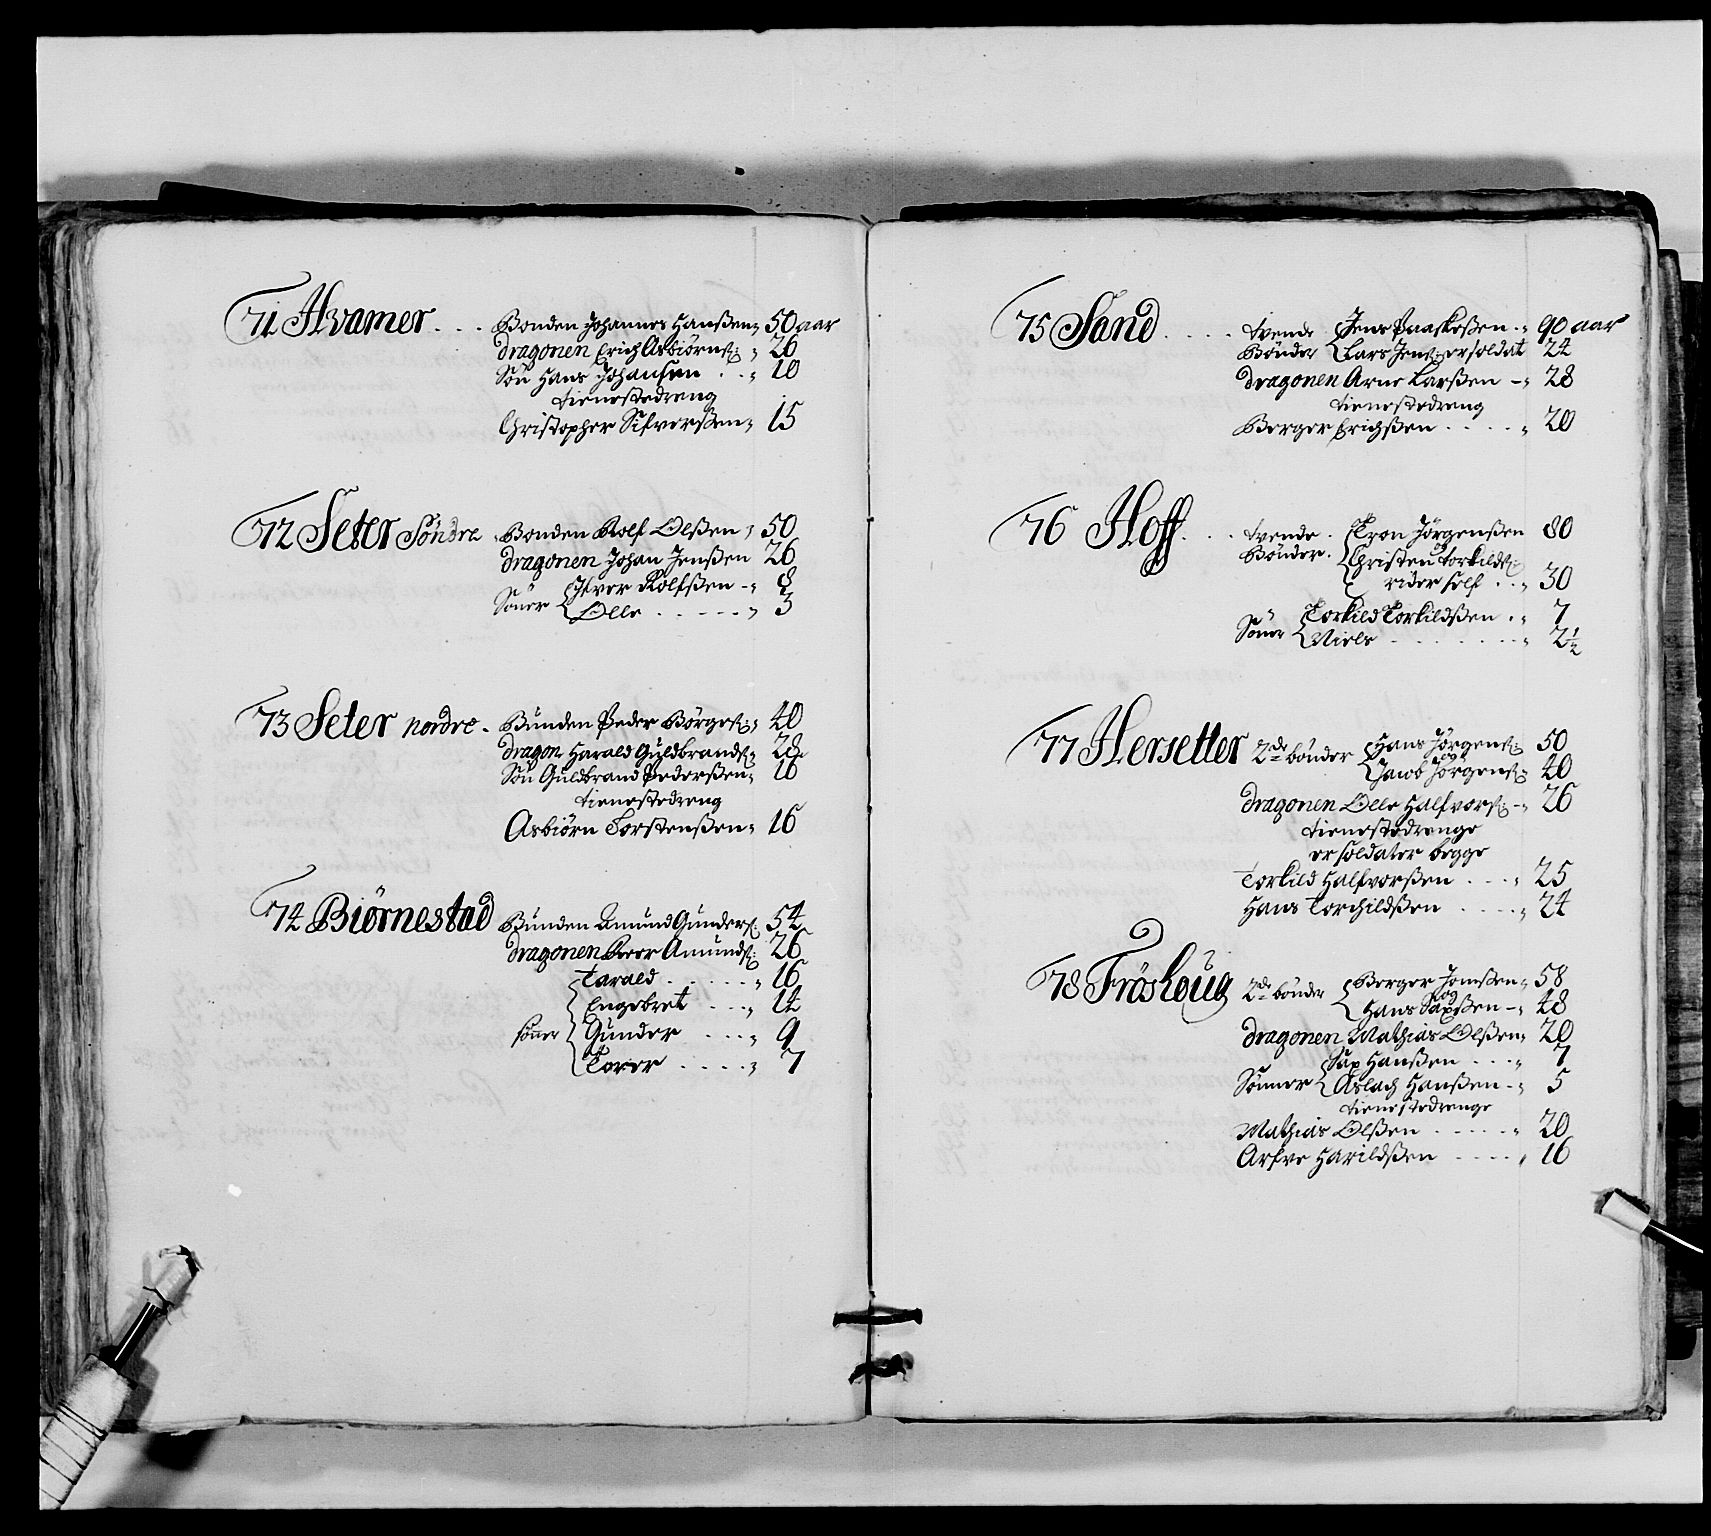 71 Hvamer . . . Bonden Johannes Hanßen 50 aar
dragonen Erich Asbiørnß: 26
Søn Hans Johansen . . 10
tienestedreng
Christopher Sifverßen 15
72 Seter Söndre Bonden Rolf Olßen 50
dragonen Johan Jenßen 26
Söner Ifver Rolfßen - 8
Olle . . . . . 3
73 Seter nordre . Bunden Peder Børgeß: 40
dragon Harald Guldbrandß: 28
Søn Guldbrand Pederßen 10
tienestedreng
Asbiørn Torstenßen 16
74 Biørnestad Bunden Amund Gunderß: 54
dragonen Amundß: 26
Tarald . . . . . 16
Engebret . . . 14
sønner Gunder . . . . 9
Torer . . . . . 7
75 Sand . . . . . tvende Jens Paaskeßen . 90 aar
Bønder Lars Jenß: er soldat 24
dragonen Arne Larßen - 28
tienestedreng
Berger Erichßen . . . . . 20
76 Hoff . . . tvende . Tron Jørgenßen 80
Bønder . Christen Torkildß:
rider self . . 30
Söner Torkild Torkildßen . 7
Niels . . . . . . . . 2½
77 Hersetter 2de bønder Hans Jørgenß: 50
og
Jacob Jørgenß: 40
dragonen Olle Halfvorß: - 26
tienestedrenge
er soldater begge
Torkild Halfvorßen . . . 25
Hans Torchildßen . . . . . 24
78 Fröshoug 2de bønder Berger Jonßen 58
og
Hans Saxßen - 48
dragonen Mathias Olßen 20
Sax Hanßen . . . 7
Sønner Aslach Hanßen - 5
tienestedrenge
Mathias Olßen . . . . . 20
Arfve Harildßen . . . . 16